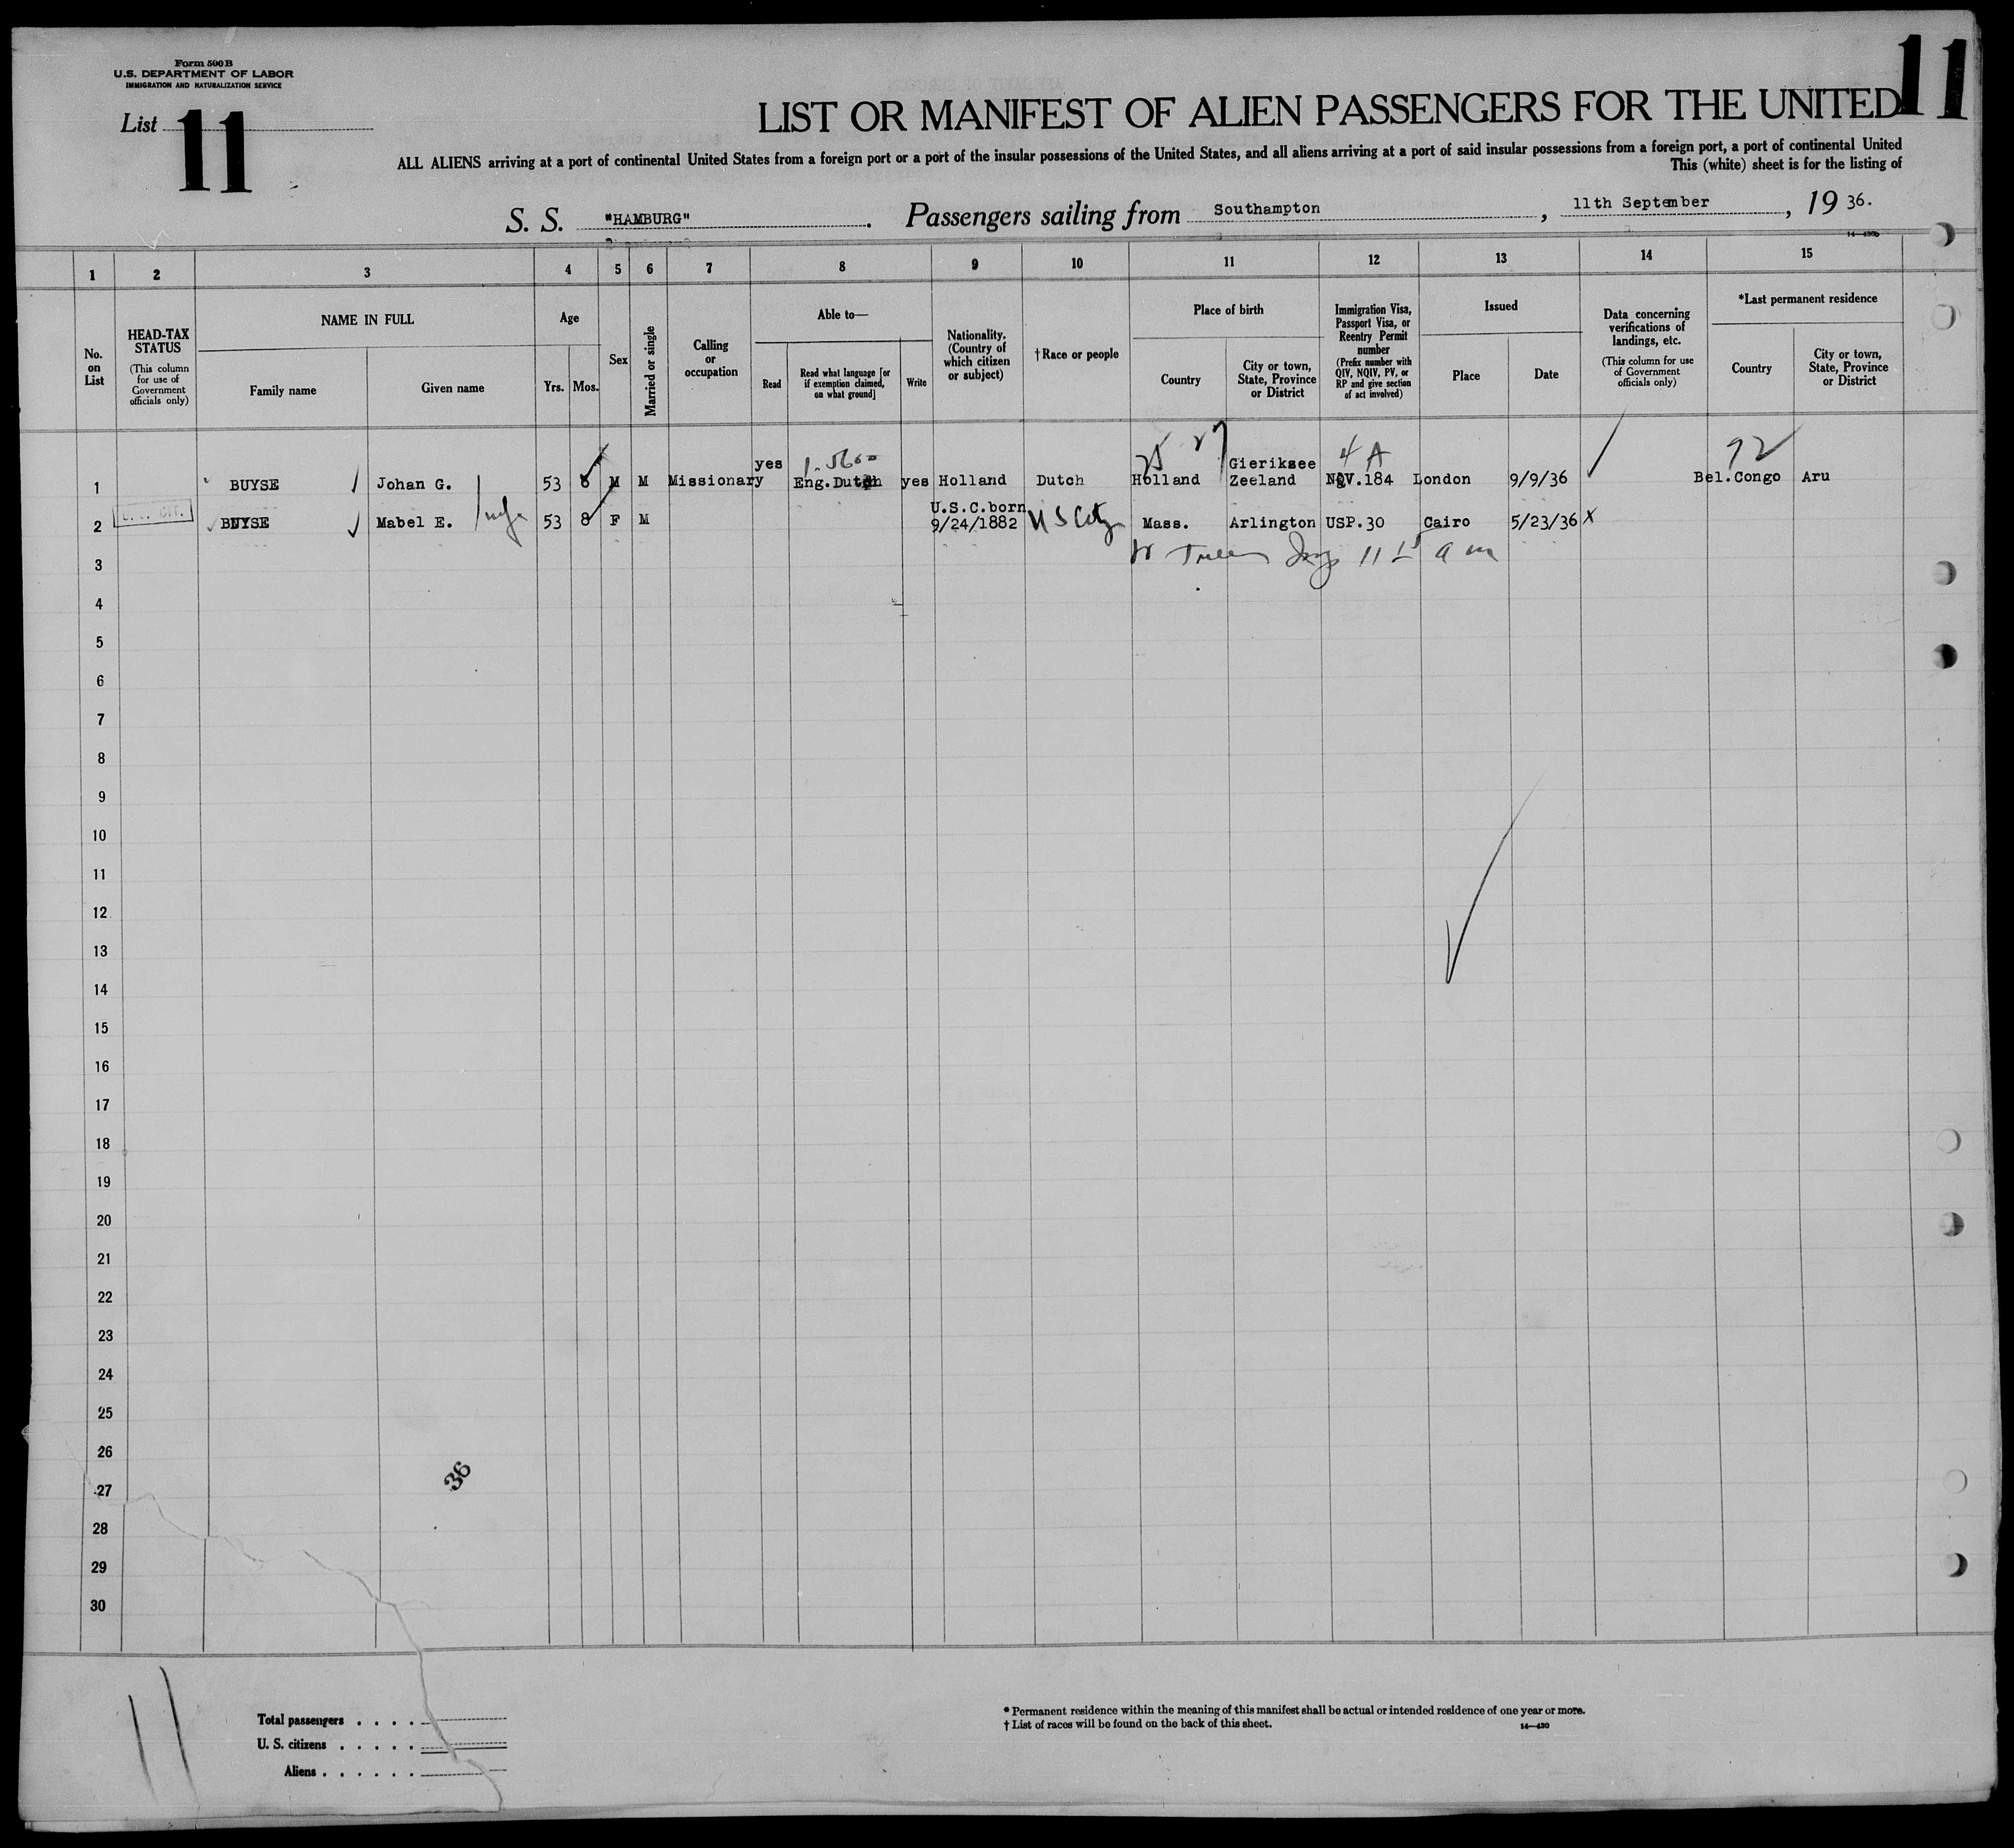 Form 500 B
U.S. DEPARTMENT OF LABOR
IMMIGRATION AND NATURALIZATION SERVICE
List 11
11
LIST OR MANIFEST OF ALIEN PASSENGERS FOR THE UNITED
ALL ALIENS arriving at a port of continental United States from a foreign port or a port of the insular possessions of the United States, and all aliens arriving at a port of said insular possessions from a foreign port, a port of continental United
This (white) sheet is for the listing of
S. S. "HAMBURG". Passengers sailing from Southampton, 11th September, 19 36.
14—430b
1 2 3 4 5 6 7 8 9 10 11 12 13 14 15
No. on List
HEAD-TAX STATUS
(This column for use of Government officials only)
NAME IN FULL
Family name
Given name
Age
Yrs.
Mos.
Sex
Married or single
Calling or occupation
Able to—
Read
Read what language [or if exemption claimed, on what ground]
Write
Nationality. (Country of which citizen or subject)
†Race or people
Place of birth
Country
City or town, State, Province or District
Immigration Visa, Passport Visa, or Reentry Permit number
(Prefix number with QIV, NQIV, PV, or RP and give section of act involved)
Issued
Place
Date
Data concerning verifications of landings, etc.
(This column for use of Government officials only)
*Last permanent residence
Country
City or town, State, Province or District
25 27 4 A 92
yes Gieriksee
1 BUYSE Johan G. 53 8 M M Missionary Eng.Dutch yes Holland Dutch Holland Zeeland NQV.184 London 9/9/36 Bel.Congo Aru
U. S. CIT. U.S.C.born
2 BUYSE Mabel E. wife 53 8 F M 9/24/1882 U S City Mass. Arlington USP.30 Cairo 5/23/36 X
3 11 15 a m
4
5
6
7
8
9
10
11
12
13
14
15
16
17
18
19
20
21
22
23
24
25
26
27
28
29
30
36
11
Total passengers . . . .
U. S. citizens . . . . .
Aliens . . . . . .
* Permanent residence within the meaning of this manifest shall be actual or intended residence of one year or more.
† List of races will be found on the back of this sheet.
14—430